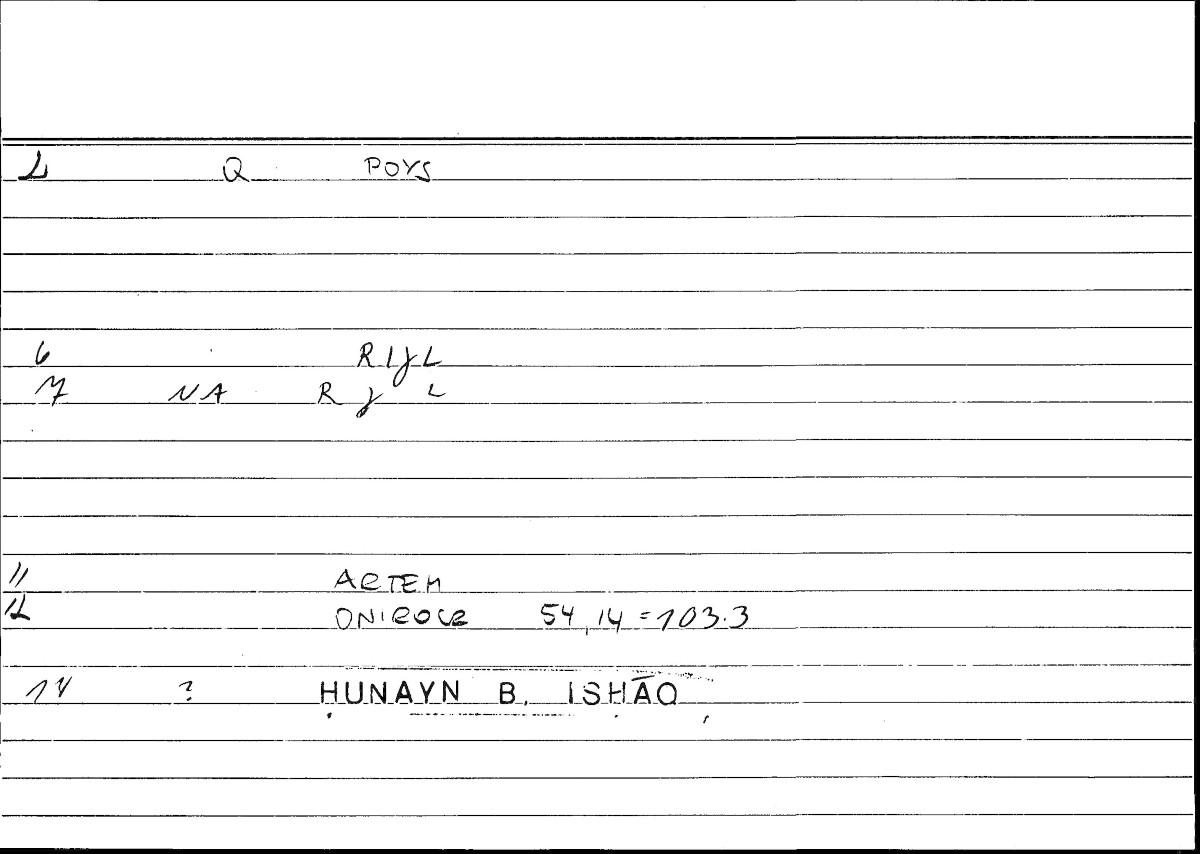 2 Q POYS
6 RIJL
7 NA R J L
11 ARTEM
12 ONIROCR 54,14 = 103.3
14 ? ḤUNAYN B. ISḤĀQ